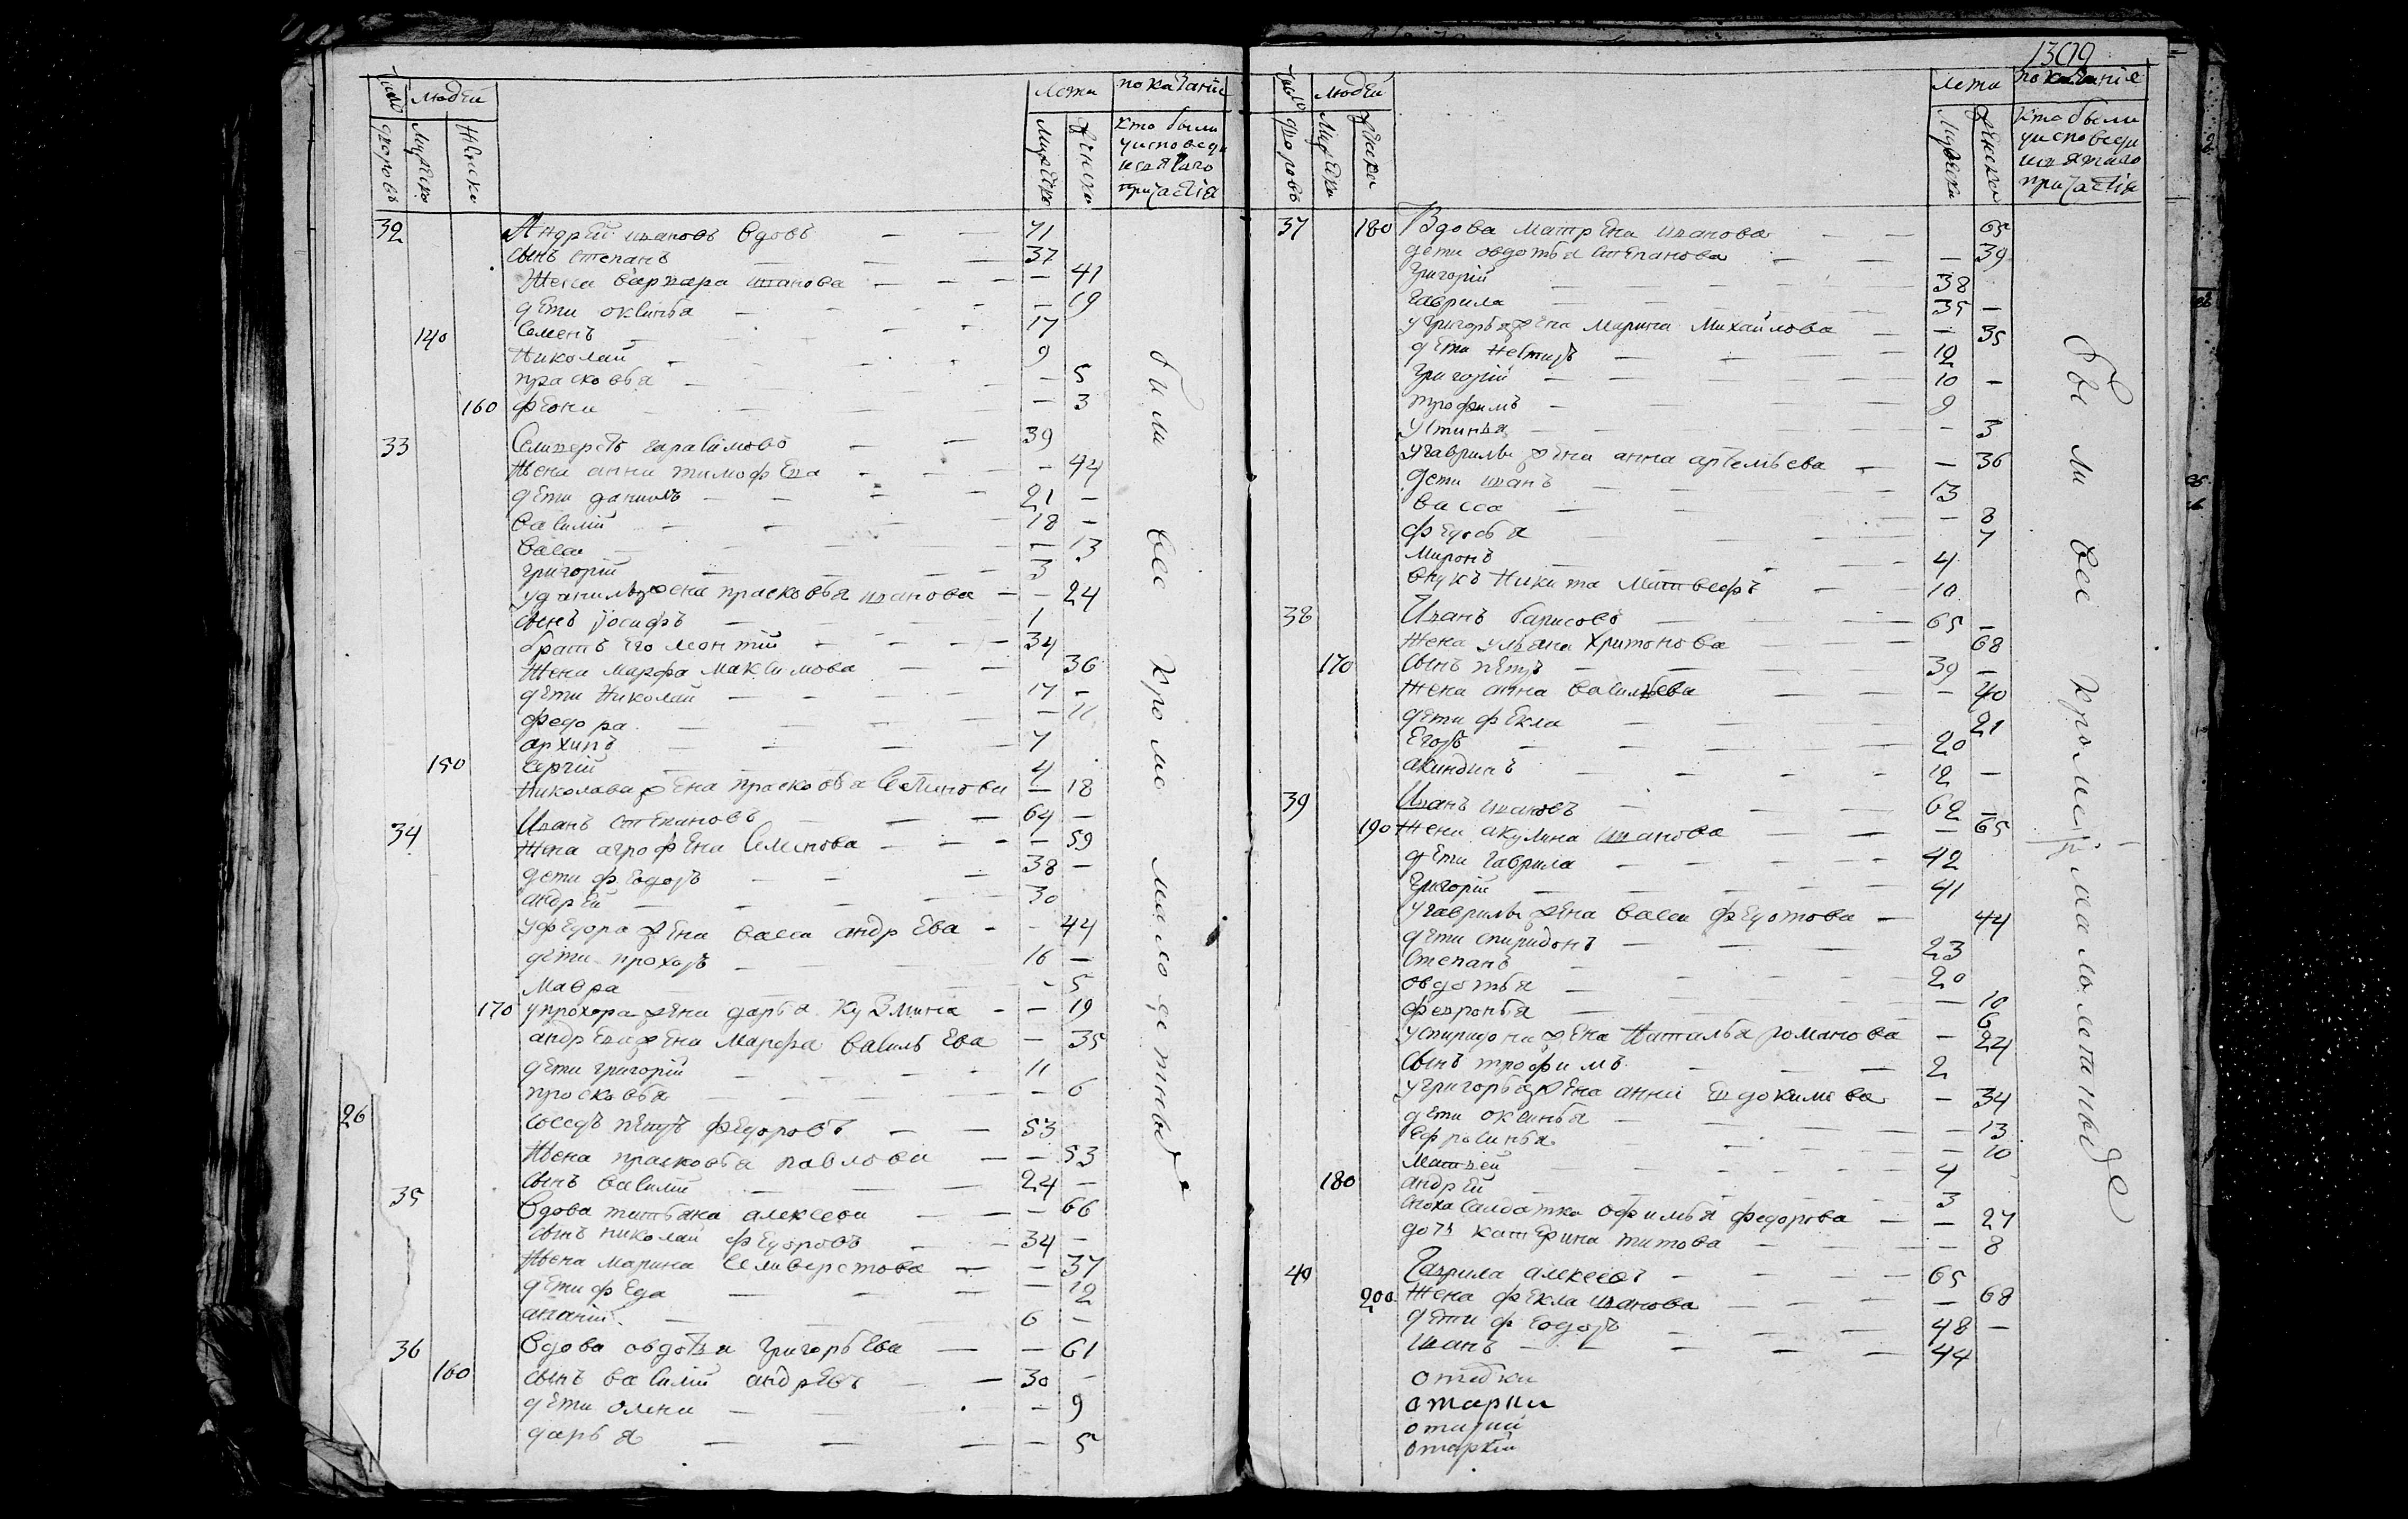 1309
число дворовъ
людей
мужеска
женска
лета
мужеска
женска
показание
кто были
уисповеди
исвятаго
причастiя
32 Андрей ивановъ вдовъ — — 71
сынъ степанъ — — 37
Жена варвара иванова — — — — 41
дети оксинья — — — 19
140 Семенъ — — 17
Николай — 9
прасковья — — — 5
160 феона — — — 3
33 Селиверстъ гарасимовъ — — 39
Жена анна тимофева — — — 44
дети данилъ — — — — 21 —
василий — — — 18 —
васса — — — 13
григорий — — — 3
уданилы жена прасковья иванова — — 24
сынъ иосифъ — 1
братъ его леонтий — — — — 34
Жена марфа максимова — — 36
дети Николай — — — — 17 —
федора — — — 11
архипъ — — — — 7
150 Сергий — 4
Николава жена прасковья — 18
34 Иванъ степановъ — — — 64 —
Жена агрофена Семенова — — — — 59
дети феодоръ — — — 38 —
андрей — — — — 30
уфедора жена васса андрева — — 44
дети прохоръ — — 16 —
Мавра — 5
170 упрохора жена дарья кузмина — — 19
андрева жена Марфа васильева — 35
дети григорий — — 11
просковья — — — — 6
26
соседъ петръ федоровъ — — 53
Жена прасковья павлова — — 53
сынъ василий — — — 24 —
35 вдова татьяна алексеева — — — 66
сынъ николай федоровъ — — 34 —
Жена марина селиверстова — — 37
дети феда — — — — 12
ананий — — — 6 —
36 Вдова овдотья григорьева — — 61
160 сынъ василий андревъ — — 30 —
дети олена — — 9
дарья — — — — 5
были все кроме малолетныхъ
число дворовъ
людей
мужеска
женска
лета
мужеска
женска
показание
кто были
уисповеди
исвятаго
причастiя
37 180 Вдова матрена иванова — — 65
дети овдотья степанова — — — 39
Григорий — — — — 38
гаврила — — — 35 —
угригорья жена марина михайлова — — 35
дети Несторъ — — — — 12
Григорий — — — — — 10 —
трофимъ — — — 9
устинья — — — — 3
угаврилы жена анна артемьева — — 36
дети иванъ — — — 13
васса — — — 8
федосья — — — 7
миронъ — — — 4
внукъ Никита матвеефъ — — 10
38 Иванъ барисовъ — — — 65 —
жена ульяна хритонова — — 68
170 сынъ петръ — — 39 —
Жена анна васильева — — — 40
дети фекла — — — 21
Егоръ — — — — 20
акиндинъ — — — — 12 —
39 Иванъ ивановъ — — — 62 —
190 жена акулина иванова — — — 65
дети гаврила — — — — 42
григорий — — — — 41
угаврилы жена васса федотова — 44
дети спиридонъ — — — 23
Степанъ — — — 20
овдотья — — — 10
февронья — — — 6
успиридона жена Наталья романова — 24
сынъ трофимъ — — — 2
угригорья жена анна евдокимова — 34
дети оксинья — — — — 13
ефросинья — — — — 10
матвей — — — — 4
180 андрей — — — — 3
сноха салдатка офимья федорова — — 27
дочь катерина титова — — — — 8
40 Гаврила алексеевъ — — — — 65
200 Жена фекла иванова — — — — 68
дети феодоръ — — — 48 —
иванъ — — — — — 44
были все кроме малолетныхъ